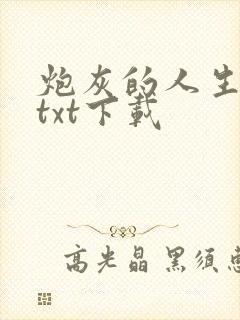 炮灰的人生
txt下载
高光晶 黑须